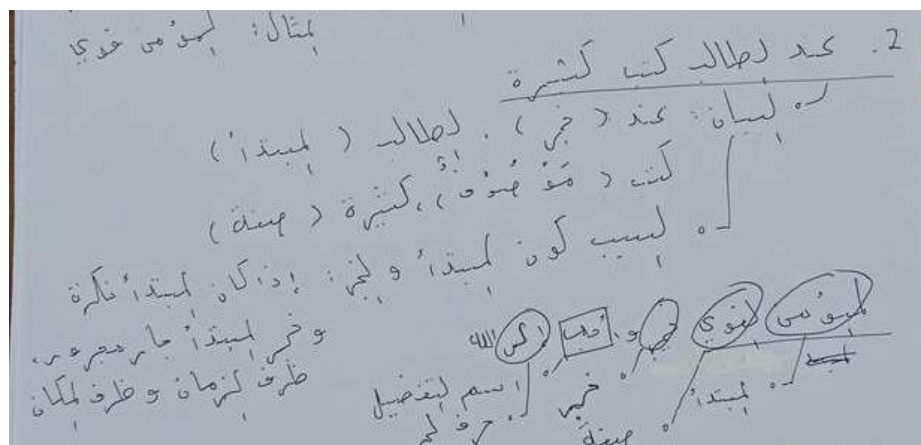 المثال: المؤمن قوي
2. عند الطالب كتب كثيرة
البيان: عند (خبر)، الطالب (المبتدأ)
كتب (مَوْصُوْف)، كثيرة (صفة)
السبب كون المبتدأ والخبر: إذا كان المبتدأ نكرة
وخبر المبتدأ جار مجرور،
ظرف الزمان وظرف المكان
المؤمن القوي خير و أحب إلى الله
المبتدأ
صفة
خبر
اسم التفضيل
حرف الجر